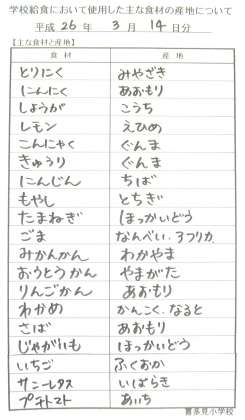 学校給食において使用した主な食材の産地について
平成 26 年 3 月 14 日分
【主な食材と産地】
食材 産地
とりにく みやざき
にんにく あおもり
しょうが こうち
レモン えひめ
こんにゃく ぐんま
きゅうり ぐんま
にんじん ちば
もやし とちぎ
たまねぎ ほっかいどう
ごま なんべい、アフリカ
みかんかん わかやま
おうとうかん やまがた
りんごかん あおもり
わかめ かんこく、なると
さば あおもり
じゃがいも ほっかいどう
いちご ふくおか
サニーレタス いばらき
プチトマト あいち
喜多見小学校